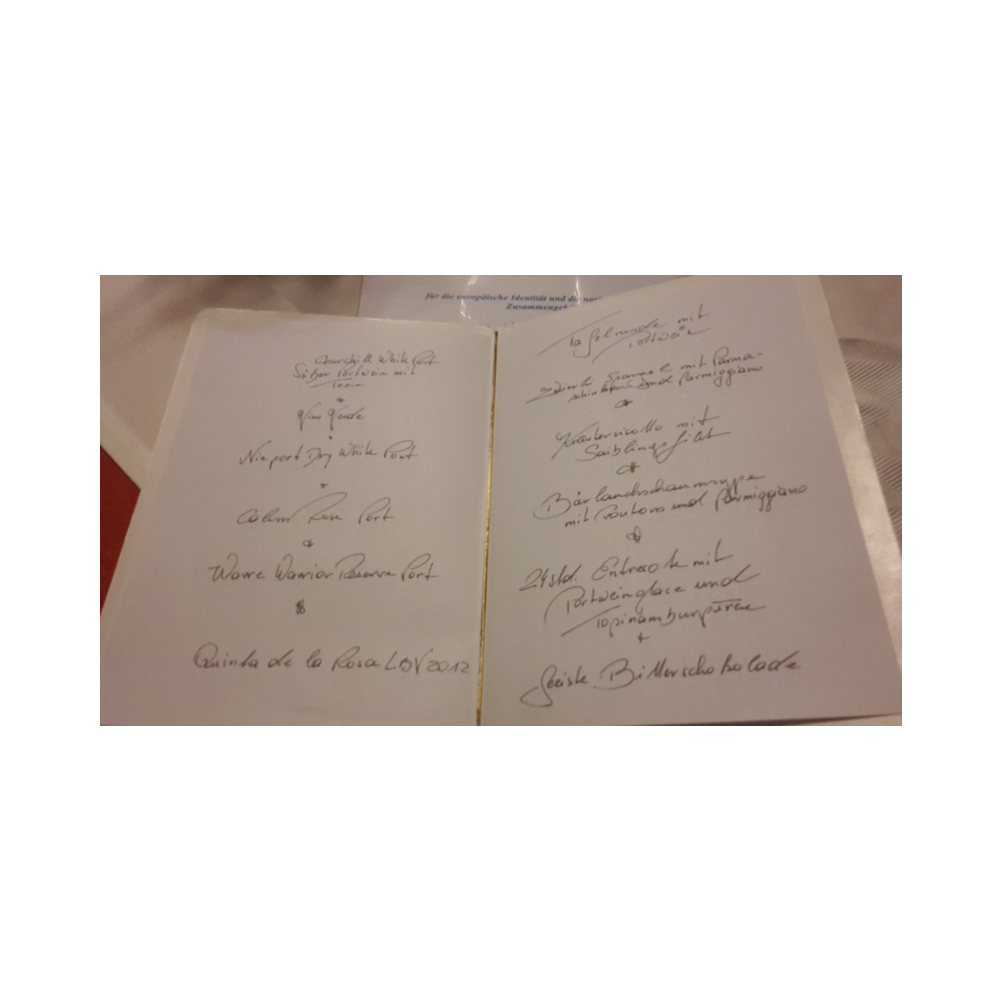 für die europäische Identität und die
Churchill White Port
Süßer Portwein mit
Tonic
Nieport Dry White Port
Rose Port
Warre Warrior Reserve Port
Quinta de la Rosa 2012
Tafelrunde mit
Portwein
mit Parma-
schinken und Parmiggiano
Kräuterrisotto mit
Saiblingsfilet
Bärlauchschaumsuppe
mit Croutons und Parmiggiano
24 std. Entrecote mit
Portweinglace und
Topinamburpüree
Geeiste Bitterschokolade